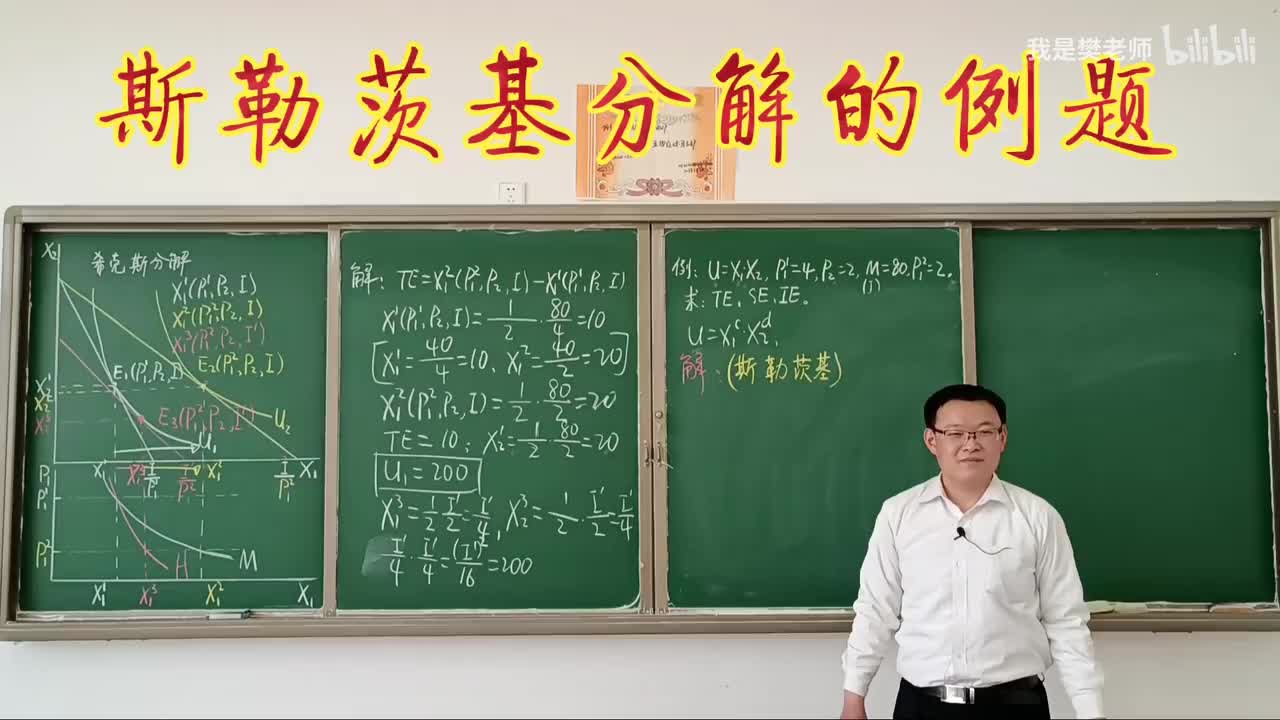 我是樊老师 bilibili
斯勒茨基分解的例题
X₂
希克斯分解
X₁¹(P₁¹,P₂,I)
X₁²(P₁²,P₂,I)
X₁³(P₁²,P₂,I')
E₂(P₁²,P₂,I)
E₁(P₁¹,P₂,I)
E₃(P₁²,P₂,I')
U₂
U₁
P₁
X₁
P₁¹
P₁²
H
M
X₁¹ X₁³ X₁² X₁
解: TE=X₁²(P₁²,P₂,I)-X₁¹(P₁¹,P₂,I)
X₁¹(P₁¹,P₂,I)=1/2·80/4=10
[X₁¹=40/4=10, X₂¹=40/2=20]
X₁²(P₁²,P₂,I)=1/2·80/2=20
TE=10; X₂¹=1/2·80/2=20
U₁=200
X₁³=1/2·I'/2=I'/4, X₂³=1/2·I'/2=I'/4
I'/4·I'/4=(I')²/16=200
例: U=X₁X₂, P₁¹=4, P₂=2, M=80, P₁²=2。
(I)
求: TE、SE、IE。
U=X₁ᶜ·X₂ᵈ,
解:(斯勒茨基)